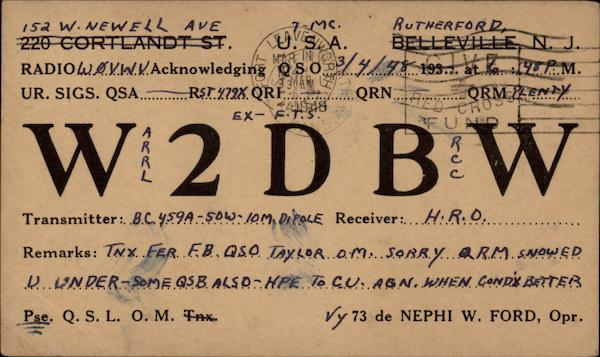 152 W. NEWELL AVE 7-MC. RUTHERFORD,
220 CORTLANDT ST. U. S. A. BELLEVILLE, N. J.
RADIO WØVWV Acknowledging QSO 3/4/48 193... at 6:48 P. M.
UR. SIGS. QSA RST 479X QRI QRN QRM PLENTY
EX- F.T.S.
W ARRL 2 D B RCC W
Transmitter: BC 459A-50W-10M. DIPOLE Receiver: H.R.O.
Remarks: TNX FER F.B. QSO TAYLOR O.M. SORRY QRM SNOWED
U UNDER-SOME QSB ALSO-HPE TO C.U. AGN. WHEN COND'X BETTER
Pse. Q. S. L. O. M. Tnx. Vy 73 de NEPHI W. FORD, Opr.
LEAVENWORTH
MAR
1948
GIVE
RED CROSS
FUND